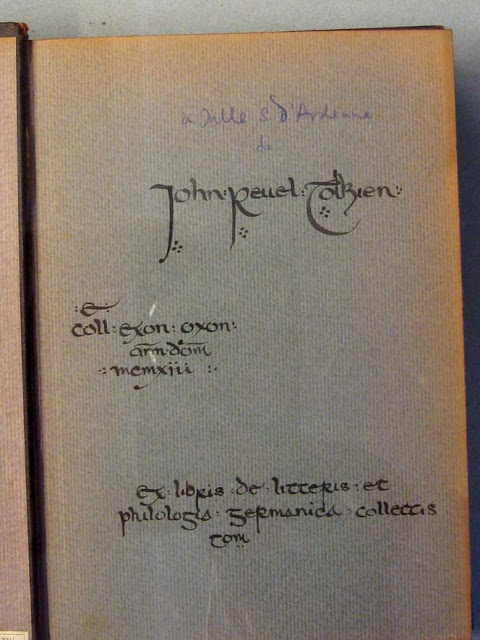 à Mlle S. d'Ardenne
de
John · Reuel · Tolkien
: E :
coll : exon : oxon :
ann · dom
mcmxiii
ex · libris · de · litteris · et
philologia · germanica · collectis
tom